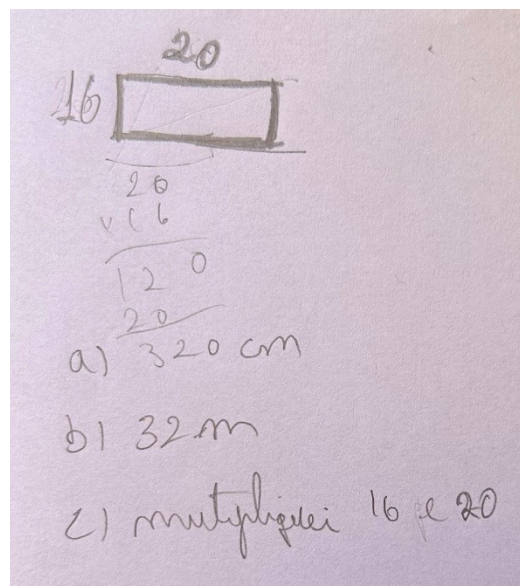 20
16
20
x16
120
20
a) 320 cm
b) 32 m
c) mutipliquei 16 e 20